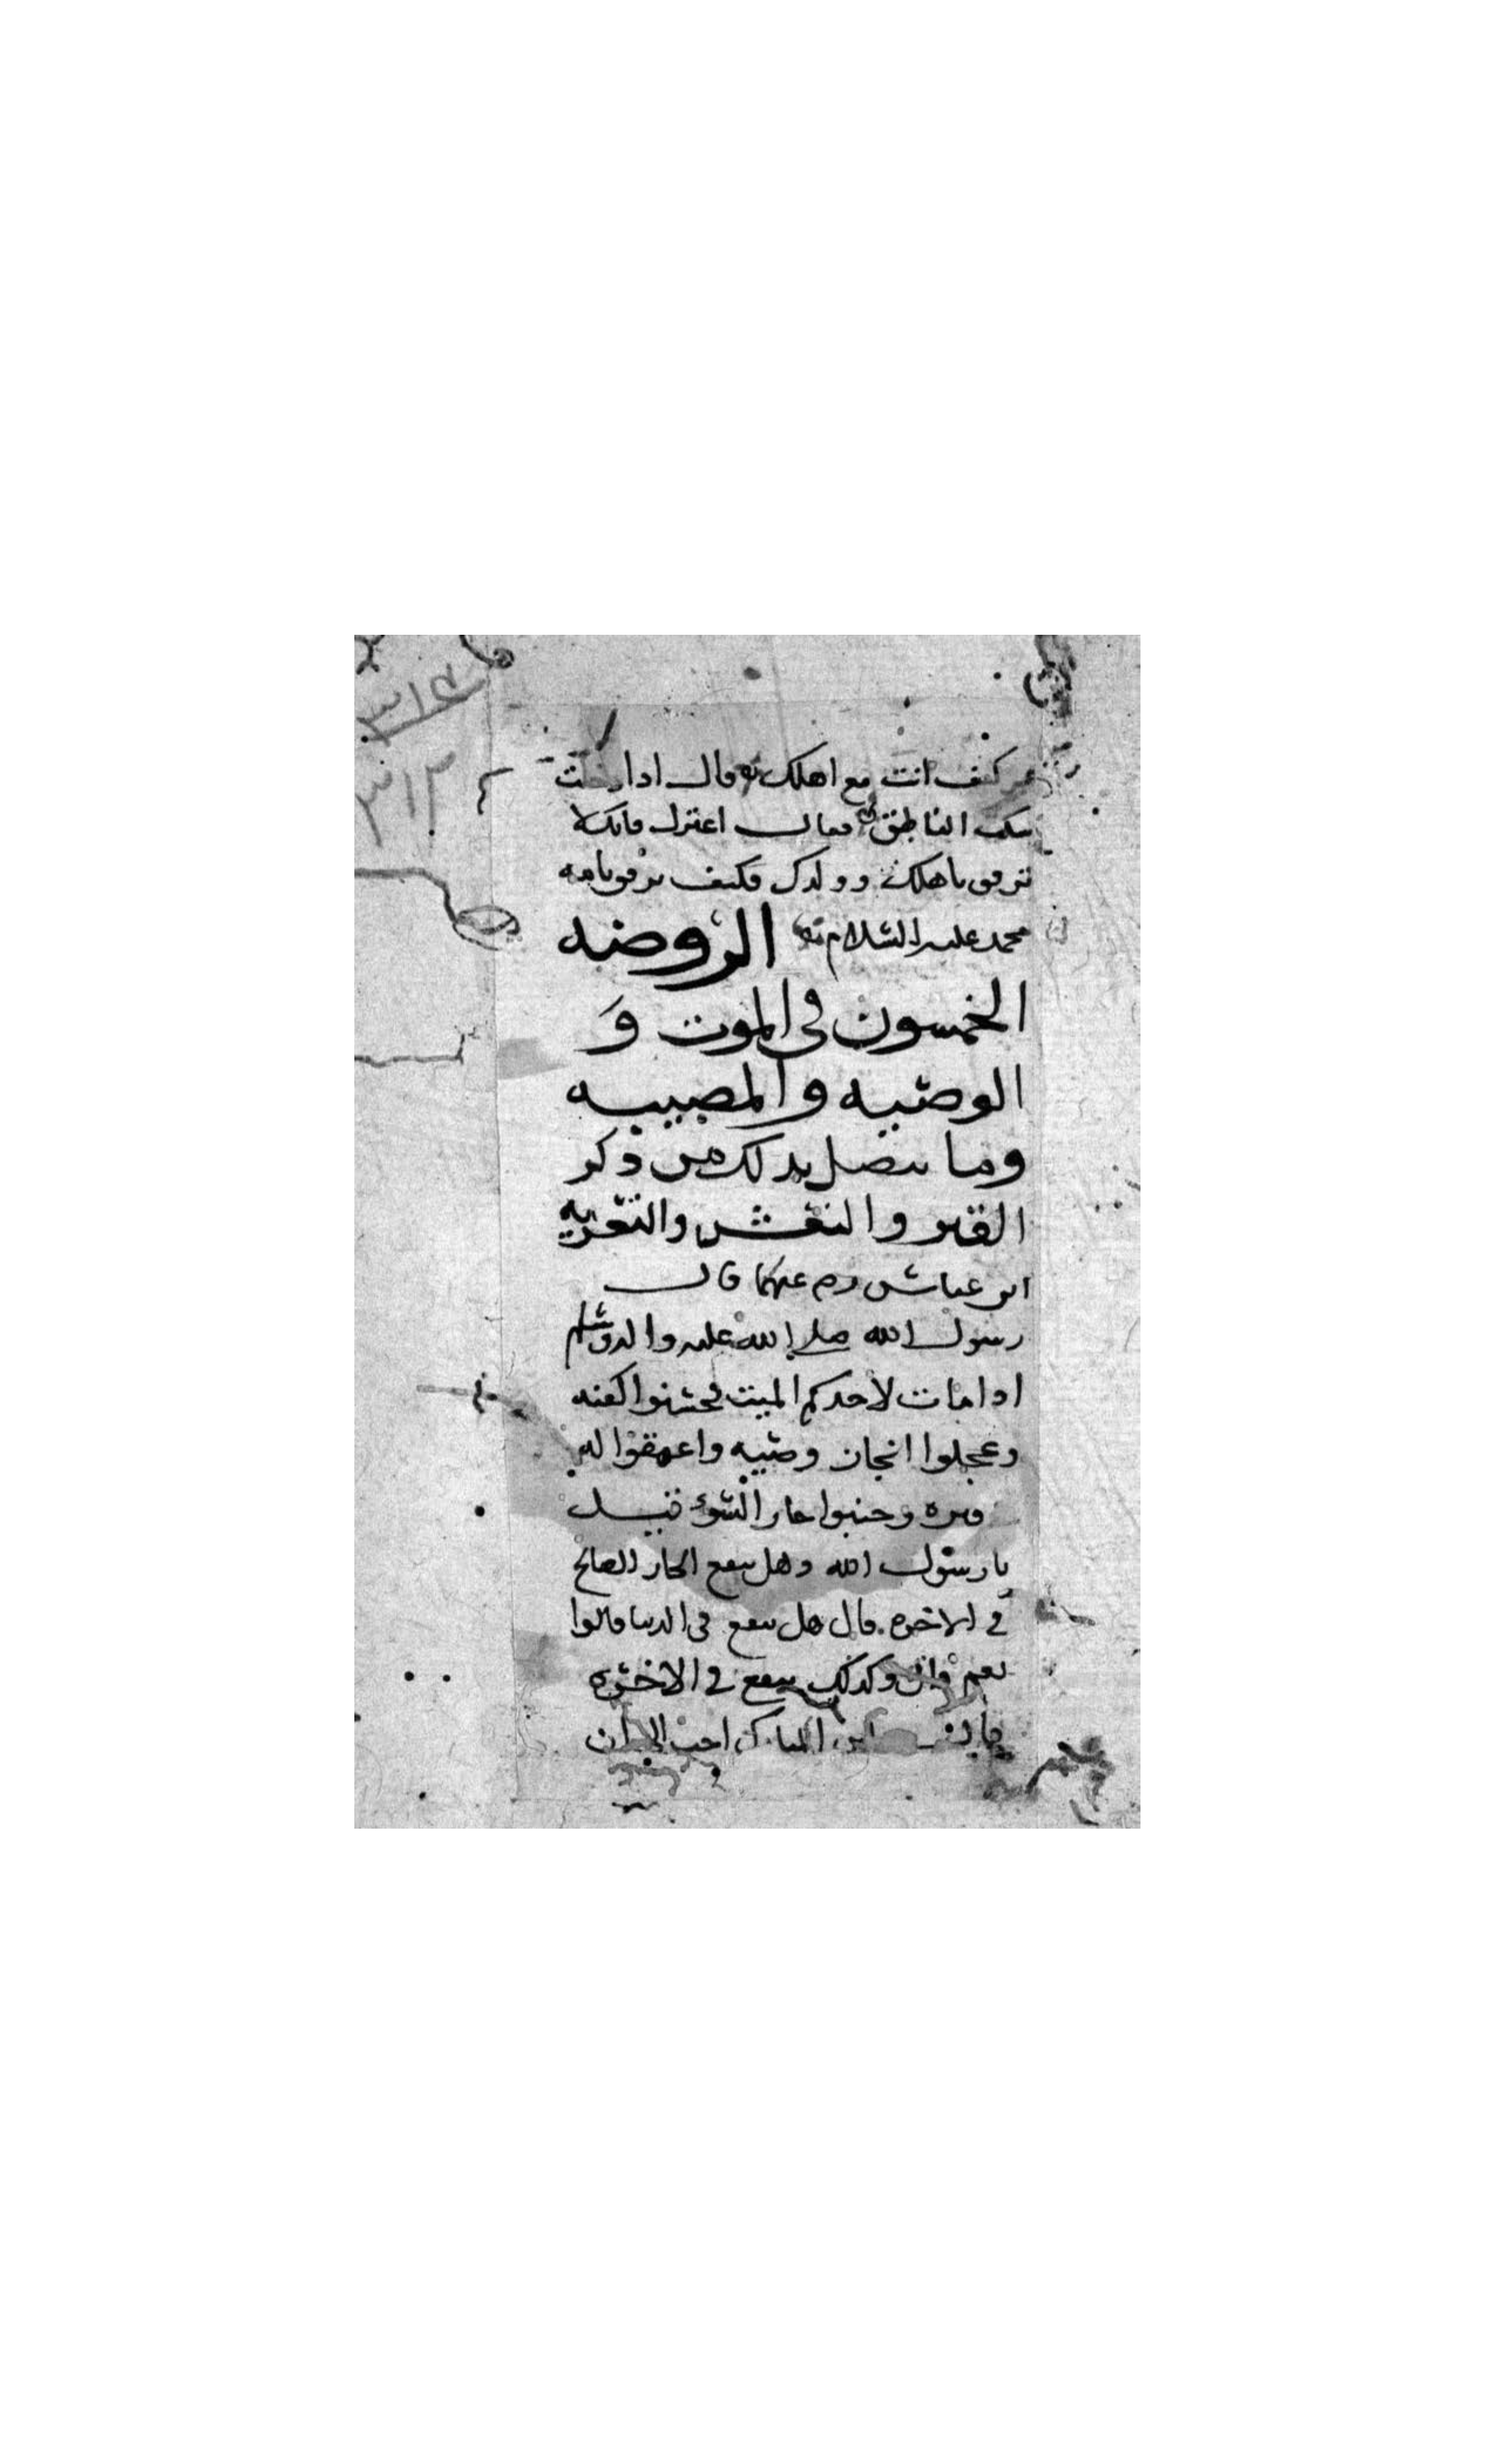 ٣١٤
٣١٢
عمر كيف انت مع اهلك قال اذا دخلت
سكت الناطق فقال اعتزل فانك لا
ترفق باهلك وولدك فكيف ترفق بامه
محمد عليه السلام الروضه
الخمسون في الموت و
الوصيه والمصيبه
وما يتصل بذلك من ذكر
القبر والنعش والتعزيه
ابن عباس رضي عنهما قال
رسول الله صلى الله عليه واله وسلم
اذا مات لاحدكم الميت فحسنوا كفنه
وعجلوا انجاز وصيه واعمقوا له
قبره وجنبوا جار السوء قيل
يا رسول الله وهل ينفع الجار الصالح
في الاخره قال هل ينفع في الدنيا قالوا
نعم قال وكذلك ينفع في الاخره
ابن المبارك احب الي ان